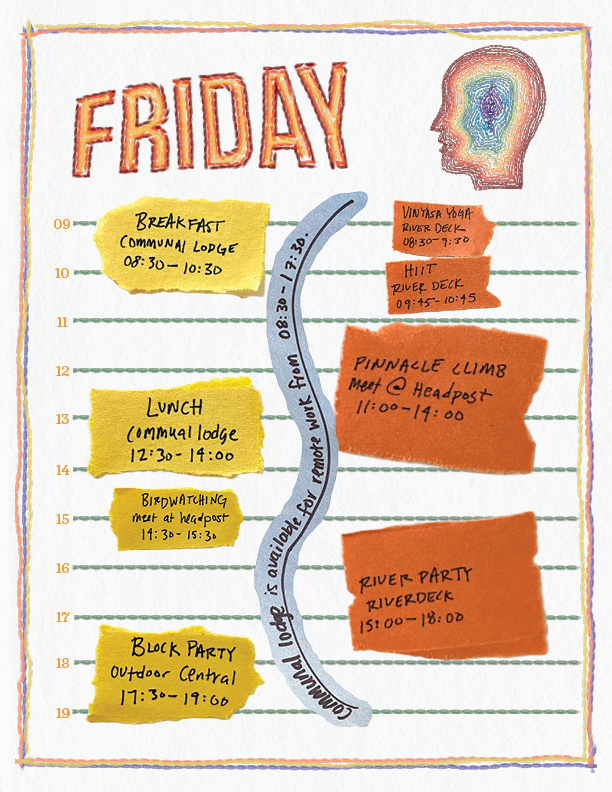 FRIDAY
09
10
11
12
13
14
15
16
17
18
19
BREAKFAST
COMMUNAL LODGE
08:30 - 10:30
LUNCH
Commual lodge
12:30 - 14:00
BIRDWATCHING
meet at headpost
14:30 - 15:30
BLOCK PARTY
Outdoor Central
17:30 - 19:00
Communal lodge is available for remote work from 08:30 - 17:30.
VINYASA YOGA
RIVER DECK
08:30 - 9:30
HIIT
RIVER DECK
09:45 - 10:45
PINNACLE CLIMB
Meet @ Headpost
11:00 - 14:00
RIVER PARTY
RIVERDECK
15:00 - 18:00